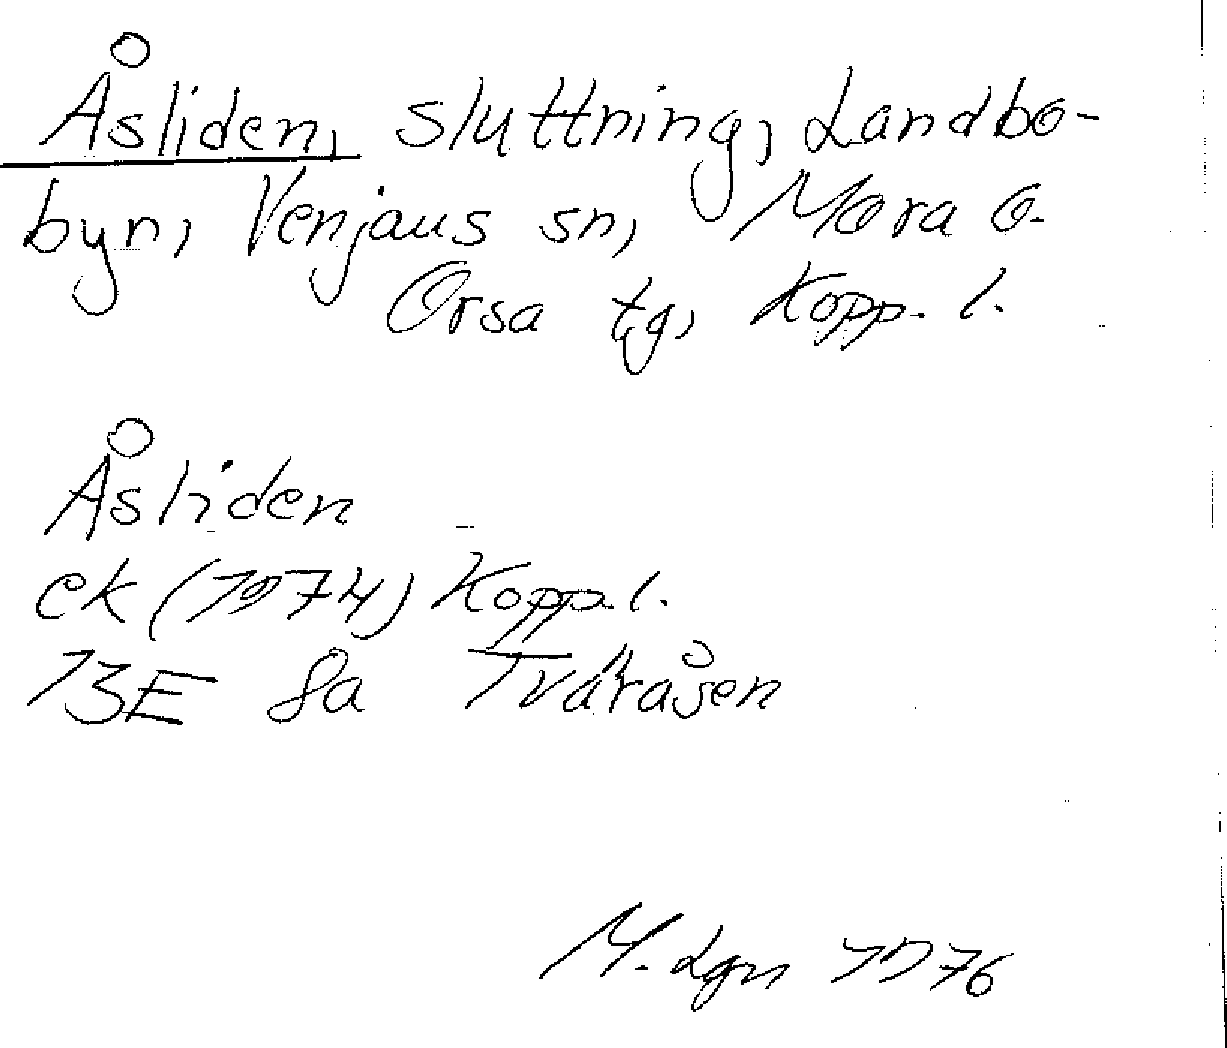 Åsliden, sluttning, Landbo-
byn, Venjaus sn, Mora o.
Orsa tg, Kopp. l.
Åsliden
ek (1974) Kopp. l.
13E 8a Tväråsen
M. Lgn 1976